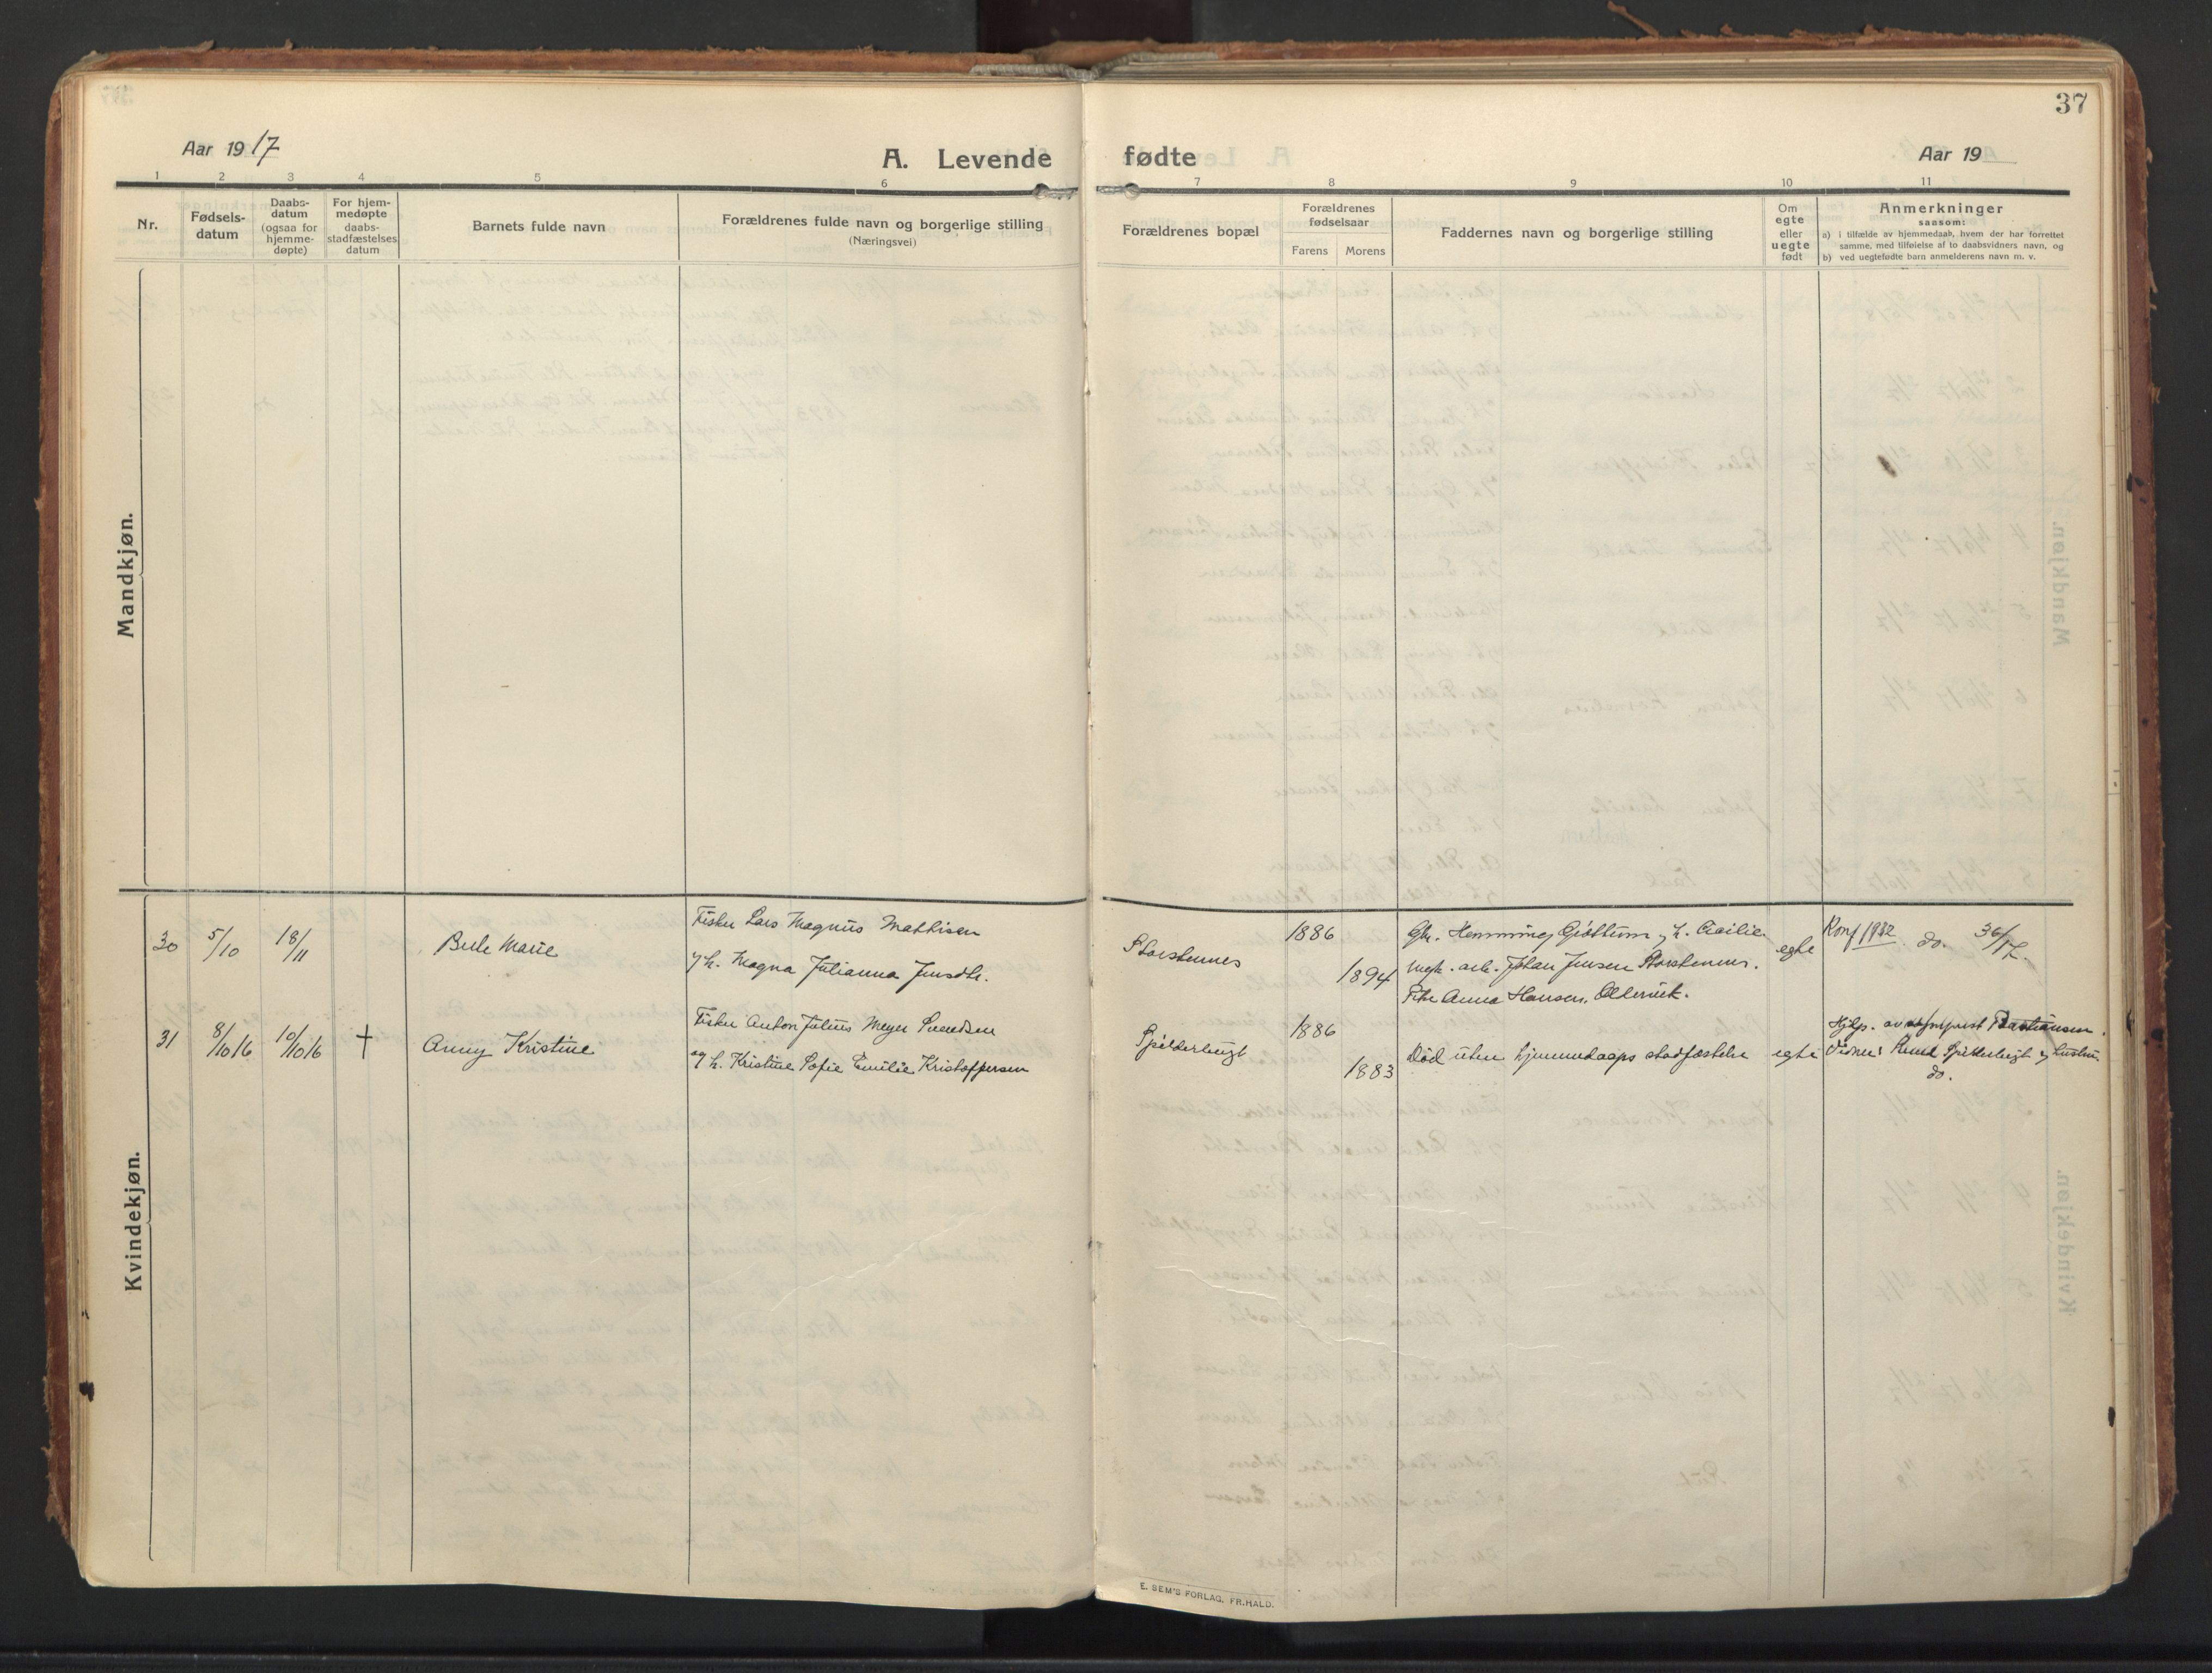 37
Aar 1917
A. Levende fødte
Aar 19
1 2 3 4 5 6 7 8 9 10 11
Nr.
Fødsels-
datum
Daabs-
datum
(ogsaa for
hjemme-
døpte)
For hjem-
medøpte
daabs-
stadfæstelses
datum
Barnets fulde navn
Forældrenes fulde navn og borgerlige stilling
(Næringsvei)
Forældrenes bopæl
Forældrenes
fødselsaar
Farens Morens
Faddernes navn og borgerlige stilling
Om
egte
eller
uegte
født
Anmerkninger
saasom:
a) i tilfælde av hjemmedaab, hvem der har forrettet
samme, med tilføielse af to daabsvidners navn, og
b) ved uegtefødte barn anmelderens navn m. v.
Mandkjøn.
Kvindekjøn.
30 5/10 18/11 Marie
Fisker Lars Magnus Mathisen
og h. Magna Julianna Jensdtr.
Storstennes
1886
1894
Gbr. Hemming og h.
arb. Johan Jensen Storstennes.
Pike Anna Hansen, Oldervik.
egte
Konf 1932 do.
31 8/10 16 10/10 16 † Anny Kristine
Fisker Anton Julius Meyer Svendsen
og h. Kristine Sofie Emilie Kristoffersen
Spilderbugt
1886
1883
Død uten hjemmedaaps stadfæstelse
egte
Hjdp. av Bastiansen.
Vidner: Spilderbugt og hustru
do.
E. SEM'S FORLAG, FR.HALD.